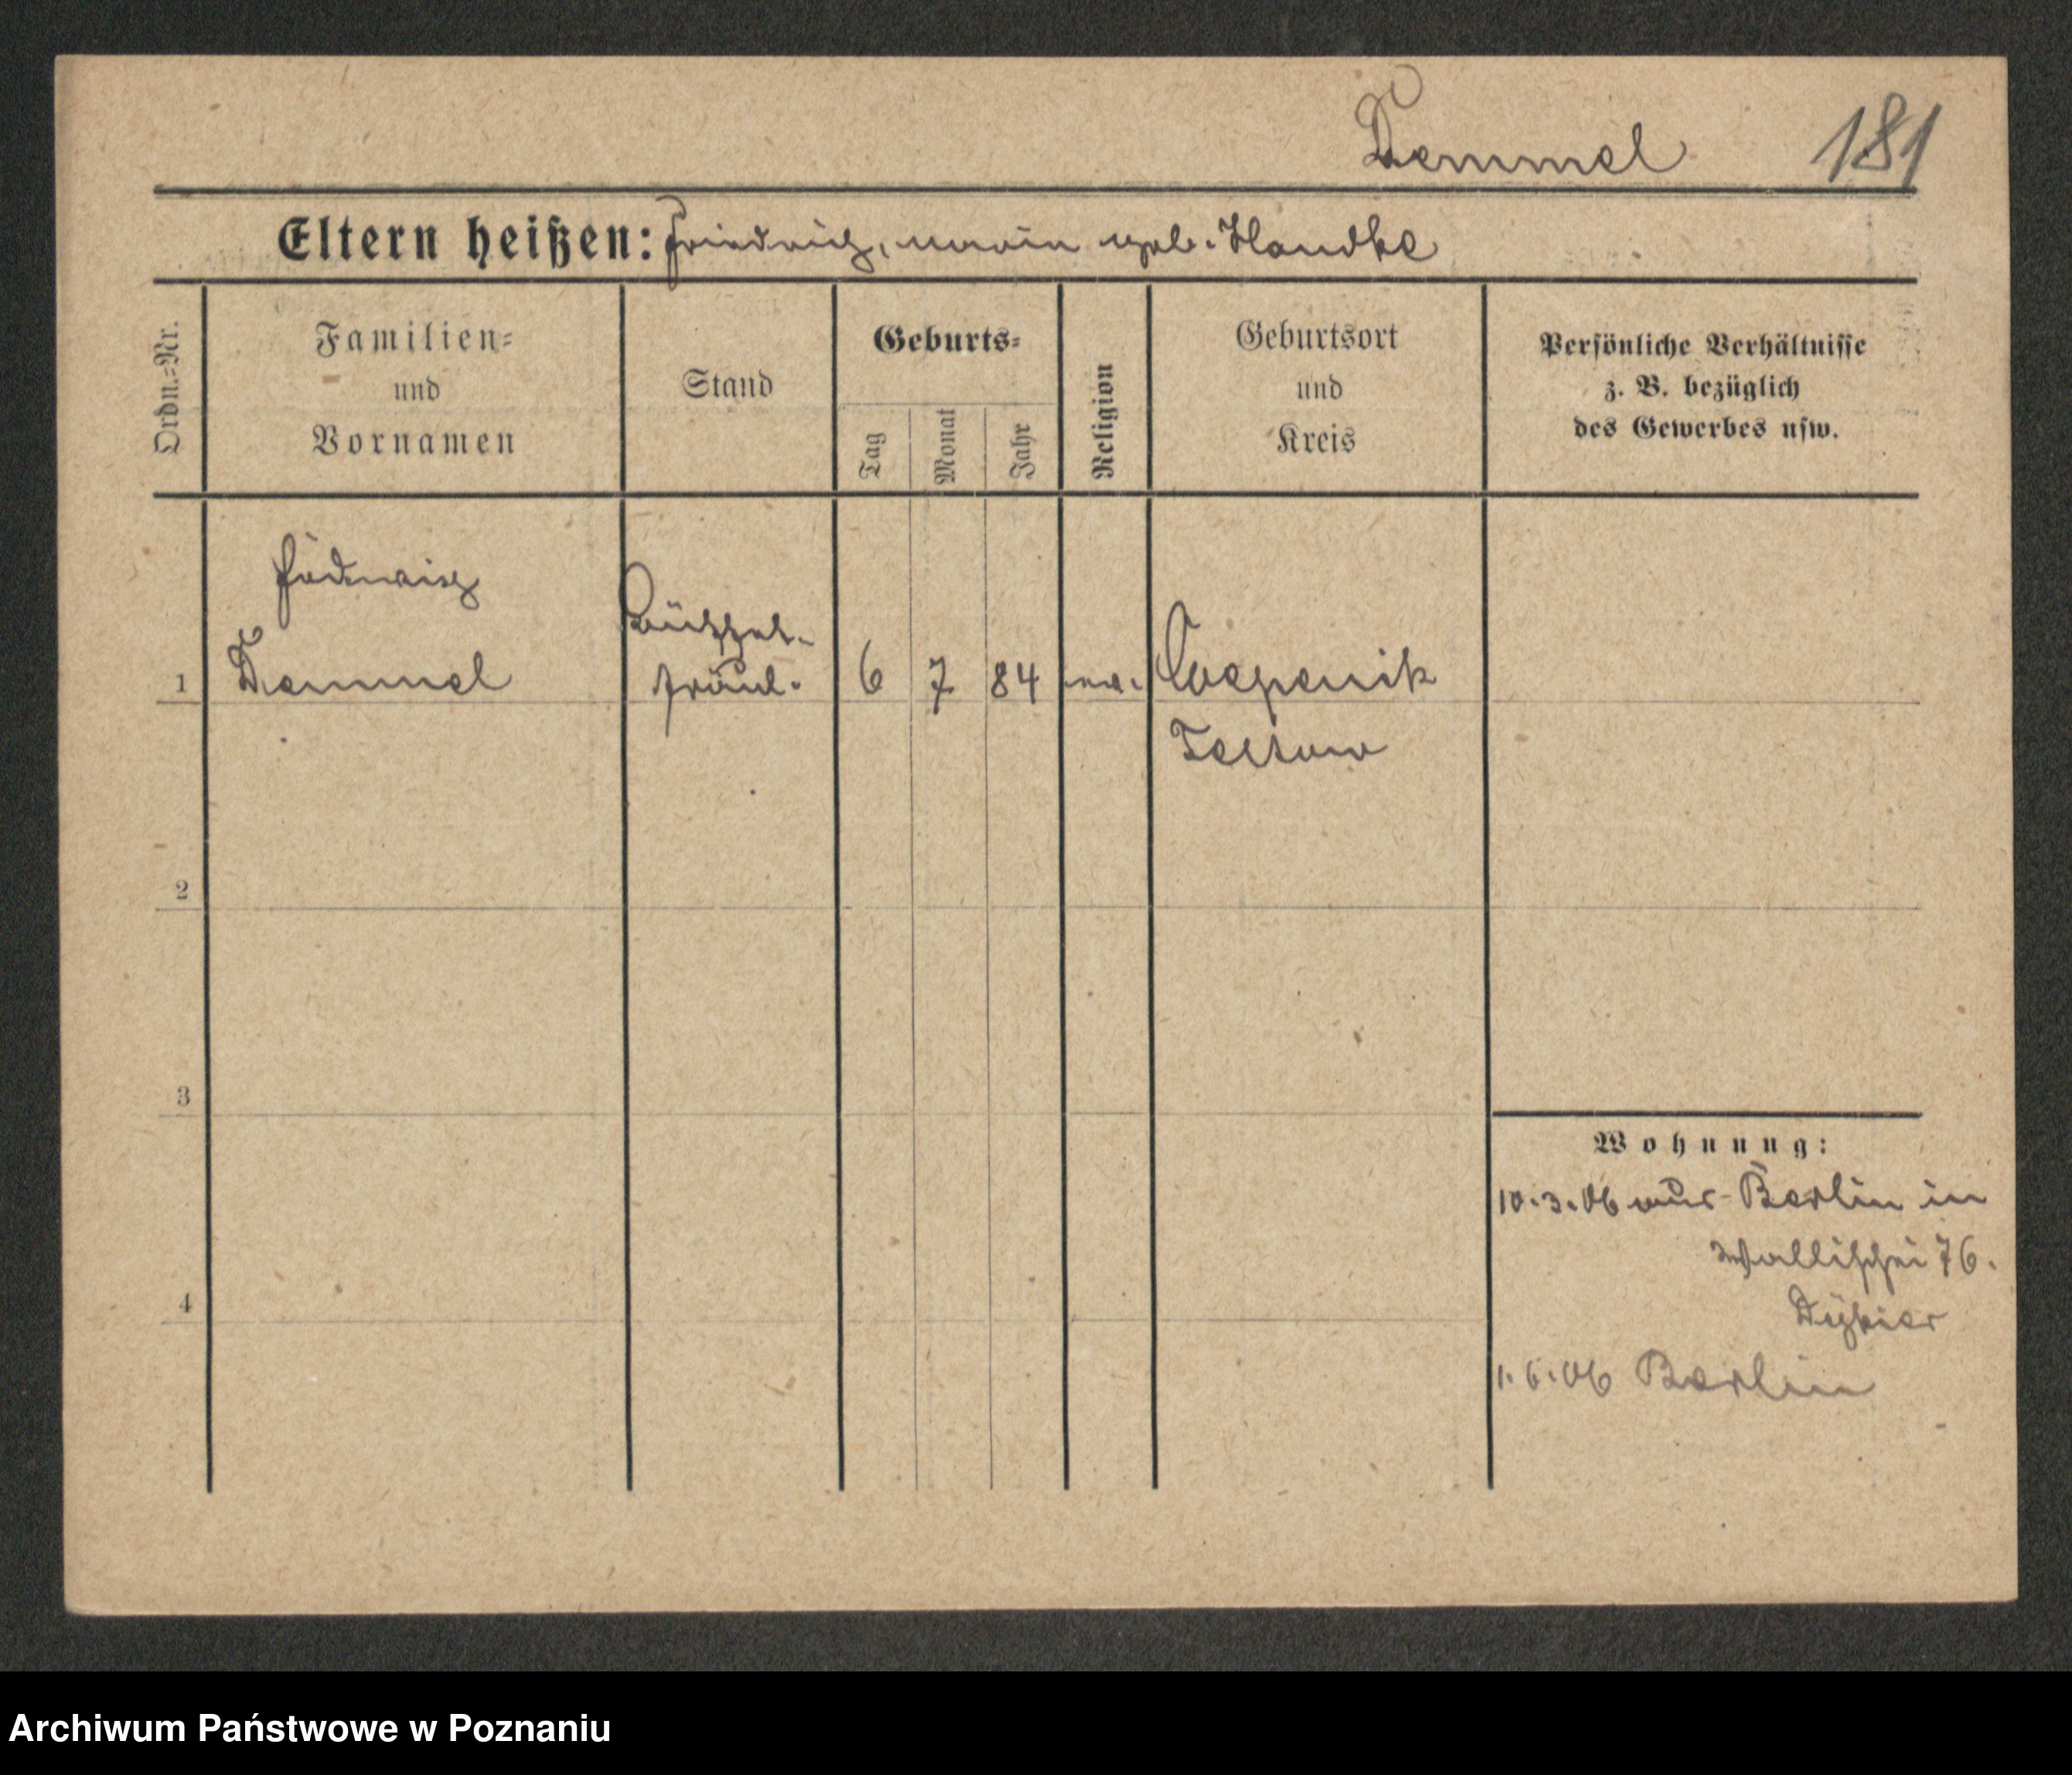 Demmel 181
Eltern heißen: Friedrich, Marie geb. Handke
Ordn.=Nr.
Familien=
und
Vornamen
Stand
Geburts=
Tag
Monat
Jahr
Religion
Geburtsort
und
Kreis
Persönliche Verhältnisse
z. B. bezüglich
des Gewerbes usw.
Hedwig
fräul.
1 Demmel 6 7 84 ev. Coepenik
Teltow
2
3
Wohnung:
10.3.06 aus Berlin in
Wallischei 76.
4
1.6.06 Berlin
Archiwum Państwowe w Poznaniu